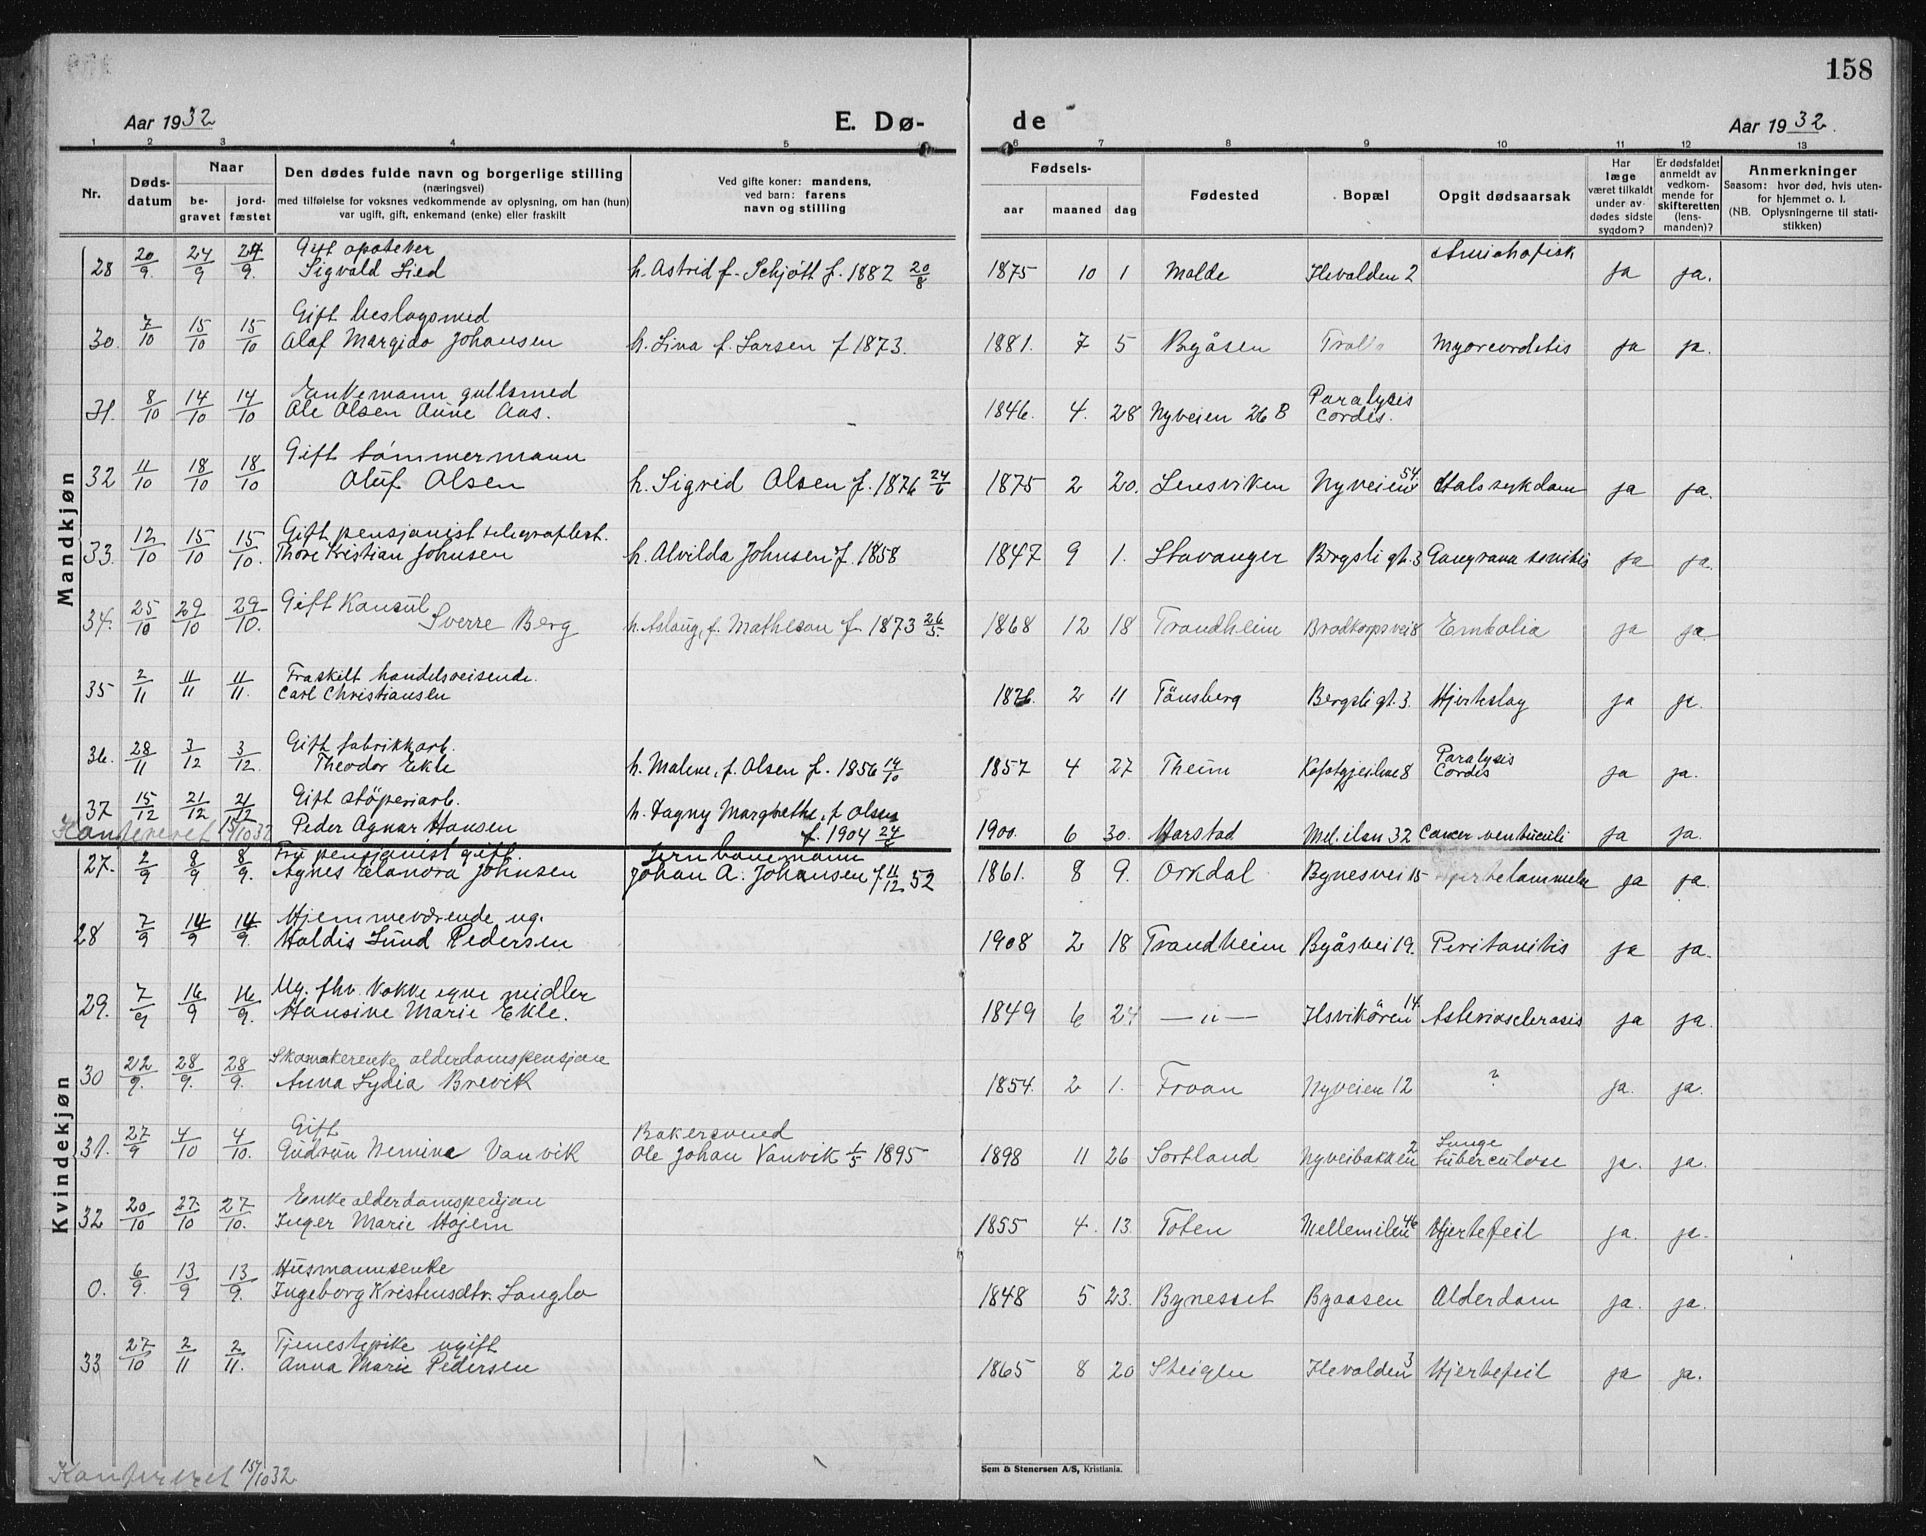 158
Aar 1932
E. Dø-
de
Aar 1932.
1 2 3 4 5 6 7 8 9 10 11 12 13
Nr.
Døds-
datum
Naar
be-
gravet
jord-
fæstet
Den dødes fulde navn og borgerlige stilling
(næringsvei)
med tilføielse for voksnes vedkommende av oplysning, om han (hun)
var ugift, gift, enkemand (enke) eller fraskilt
Ved gifte koner: mandens,
ved barn: farens
navn og stilling
Fødsels-
aar maaned dag
Fødested
Bopæl
Opgit dødsaarsak
Har
læge
været tilkaldt
under av-
dødes sidste
sygdom?
Er dødsfaldet
anmeldt av
vedkom-
mende for
skifteretten
(lens-
manden)?
Anmerkninger
Saasom: hvor død, hvis uten-
for hjemmet o. l.
(NB. Oplysningerne til stati-
stikken)
Mandkjøn
Gift apoteker
28 20/9. 24/9 24/9. Sigvald Lied h. Astrid f. Schjött f. 1882 20/8 1875 10 1 Molde Ilevolden 2 ja ja.
Gift beslagsmed
30. 7/10 15/10 15/10 Olaf Margido Johansen h. Lina f. Larsen f 1873. 1881. 7 5 Byåsen Myocorditis ja ja.
Enkemann gullsmed
31. 8/10 14/10 14/10 Ole Olsen Aune Aas. 1846. 4. 28 Nyveien 26 B Paralysis
cordis.
Gift tømmermann
32 11/10 18/10 18/10 Oluf Olsen h. Sigrid Olsen f. 1876 24/6 1875 2 20. Lensviken Nyveien 54 Halssykdom ja ja.
Gift pensjonist telegrafbest.
33. 12/10 15/10 15/10. Thore Kristian Johnsen h. Alvilda Johnsen f. 1858 1847 9 1. Stavanger Bergsli gt. 3 Gangrana senitis ja ja.
Gift Konsul
34. 25/10 29/10 29/10. Sverre Berg h. Aslaug, f. Matheson f. 1873 26/5. 1868 12 18 Trondheim Brodkorpsvei 8 Embolia ja ja.
Fraskilt handelsreisende.
35 2/11 11/11 11/11. Carl Christiansen 1876. 2 11 Tönsberg Bergsli gt. 3. Hjerteslag ja ja.
Gift fabrikkarb.
36. 28/11 3/12 3/12. Theodor Ekle h. Malene, f. Olsen f. 1856 14/10 1857 4 27 Theim 8 Paralysis
Cordis ja ja.
Gift støperiarb.
37 15/12 21/12 21/12 Peder Agnar Hansen h. Dagny Margrethe, f Olsen
f. 1904 24/6 1900. 6 30. Harstad Mel. ilen 32 Cancer ventriculi ja ja.
Konfereret 15/10 32
Kvindekjøn
Fru pensjonist gift. Jernbanemann
27. 2/9 8/9 8/9. Agnes Elanora Johnsen Johan A. Johansen f 11/12 52 1861. 8 9. Orkdal Bynesvei 15 Hjertelammelse ja ja.
Hjemmeværende ug.
28 7/9 14/9 14/9. Haldis Lund Pedersen 1908 2 18 Trondheim Byåsvei 19. Peritonitis ja ja.
Ug. fhv. kokke egne midler
29. 7/9 16/9 16/9. Hansine Marie Ekle. 1849 6 24 — „ — Ilsvikören 14. Asteriosclerosis ja ja.
Skomakerenke, alderdomspensjon
30 22/9. 28/9. 28/9. Anna Lydia Brevik 1854. 2 1. Froan Nyveien 12 ? ja. ja.
Gift Bakersvend
31. 27/9 4/10 4/10. Gudrun Nemine Vanvik Ole Johan Vanvik 1/5 1895 1898 11 26 Sortland Nyveibakken 2 Lunge
tuberculose ja. ja.
Enke alderdomspensjon
32 20/10 27/10 27/10. Inger Marie Højem 1855 4. 13. Toten Mellemilen 46 Hjertefeil ja. ja.
Husmannsenke
0. 6/9. 13/9 13/9. Ingeborg Kristensdtr. Langlo 1848 5 23. Bynesset Byaasen Alderdom ja. ja.
Tjenestepike ugift
33 27/10 2/11 2/11. Anna Marie Pedersen 1865 8 20 Steigen Ilevolden 3 Hjertefeil ja ja.
Konfereret 15/10 32
Sem & Stenersen A/S, Kristiania.